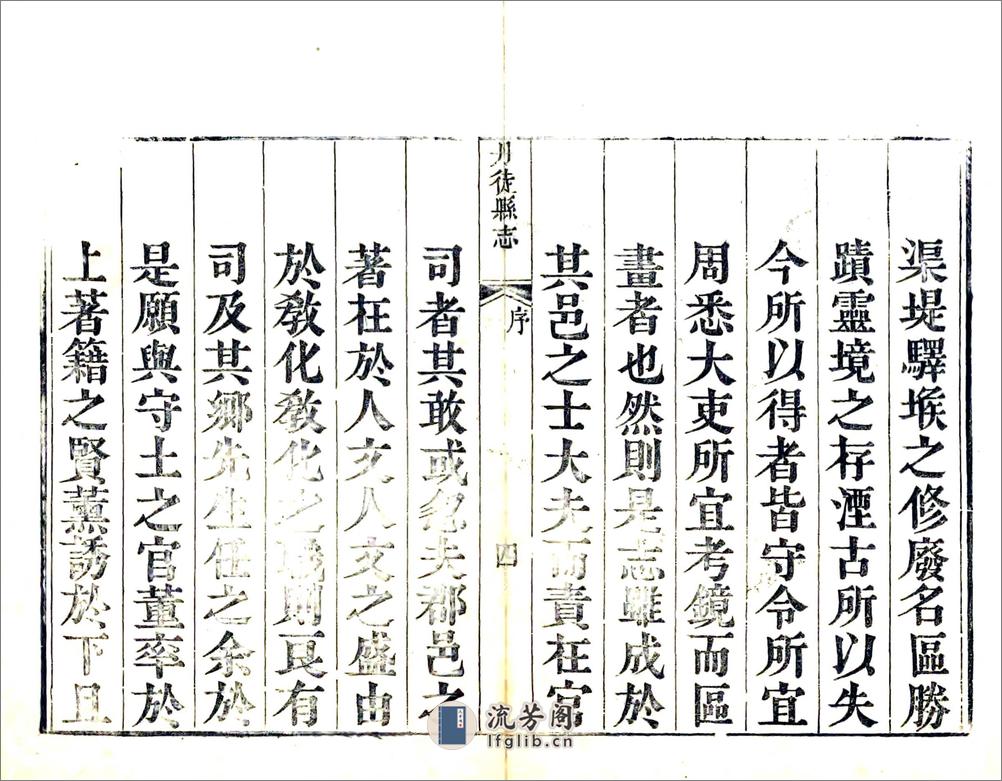 渠堤驛堠之修廢名區勝
蹟靈境之存湮古所以失
今所以得者皆守令所宜
周悉大吏所宜考鏡而區
畫者也然則是志雖成於
其邑之士大夫而責在官
丹徒縣志
序
四
司者其敢或忽夫郡邑之
著在於人文人文之盛由
於教化教化之職則良有
司及其鄉先生任之余於
是願與守土之官董率於
上著籍之賢薰誘於下且
流芳阁
lfglib.cn